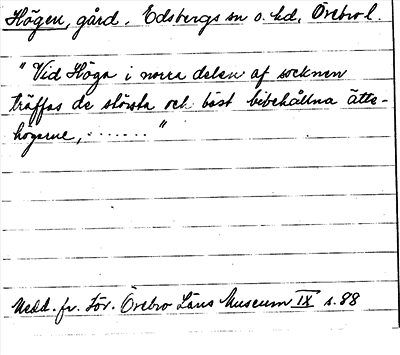 Högen, gård, Edsbergs sn o. hd, Örebro l.
"Vid Höga i norra delen af socknen
träffas de största och bäst bibehållna ätte-
högarne, ......."
Medd. fr. För. Örebro Läns Museum IX s. 88